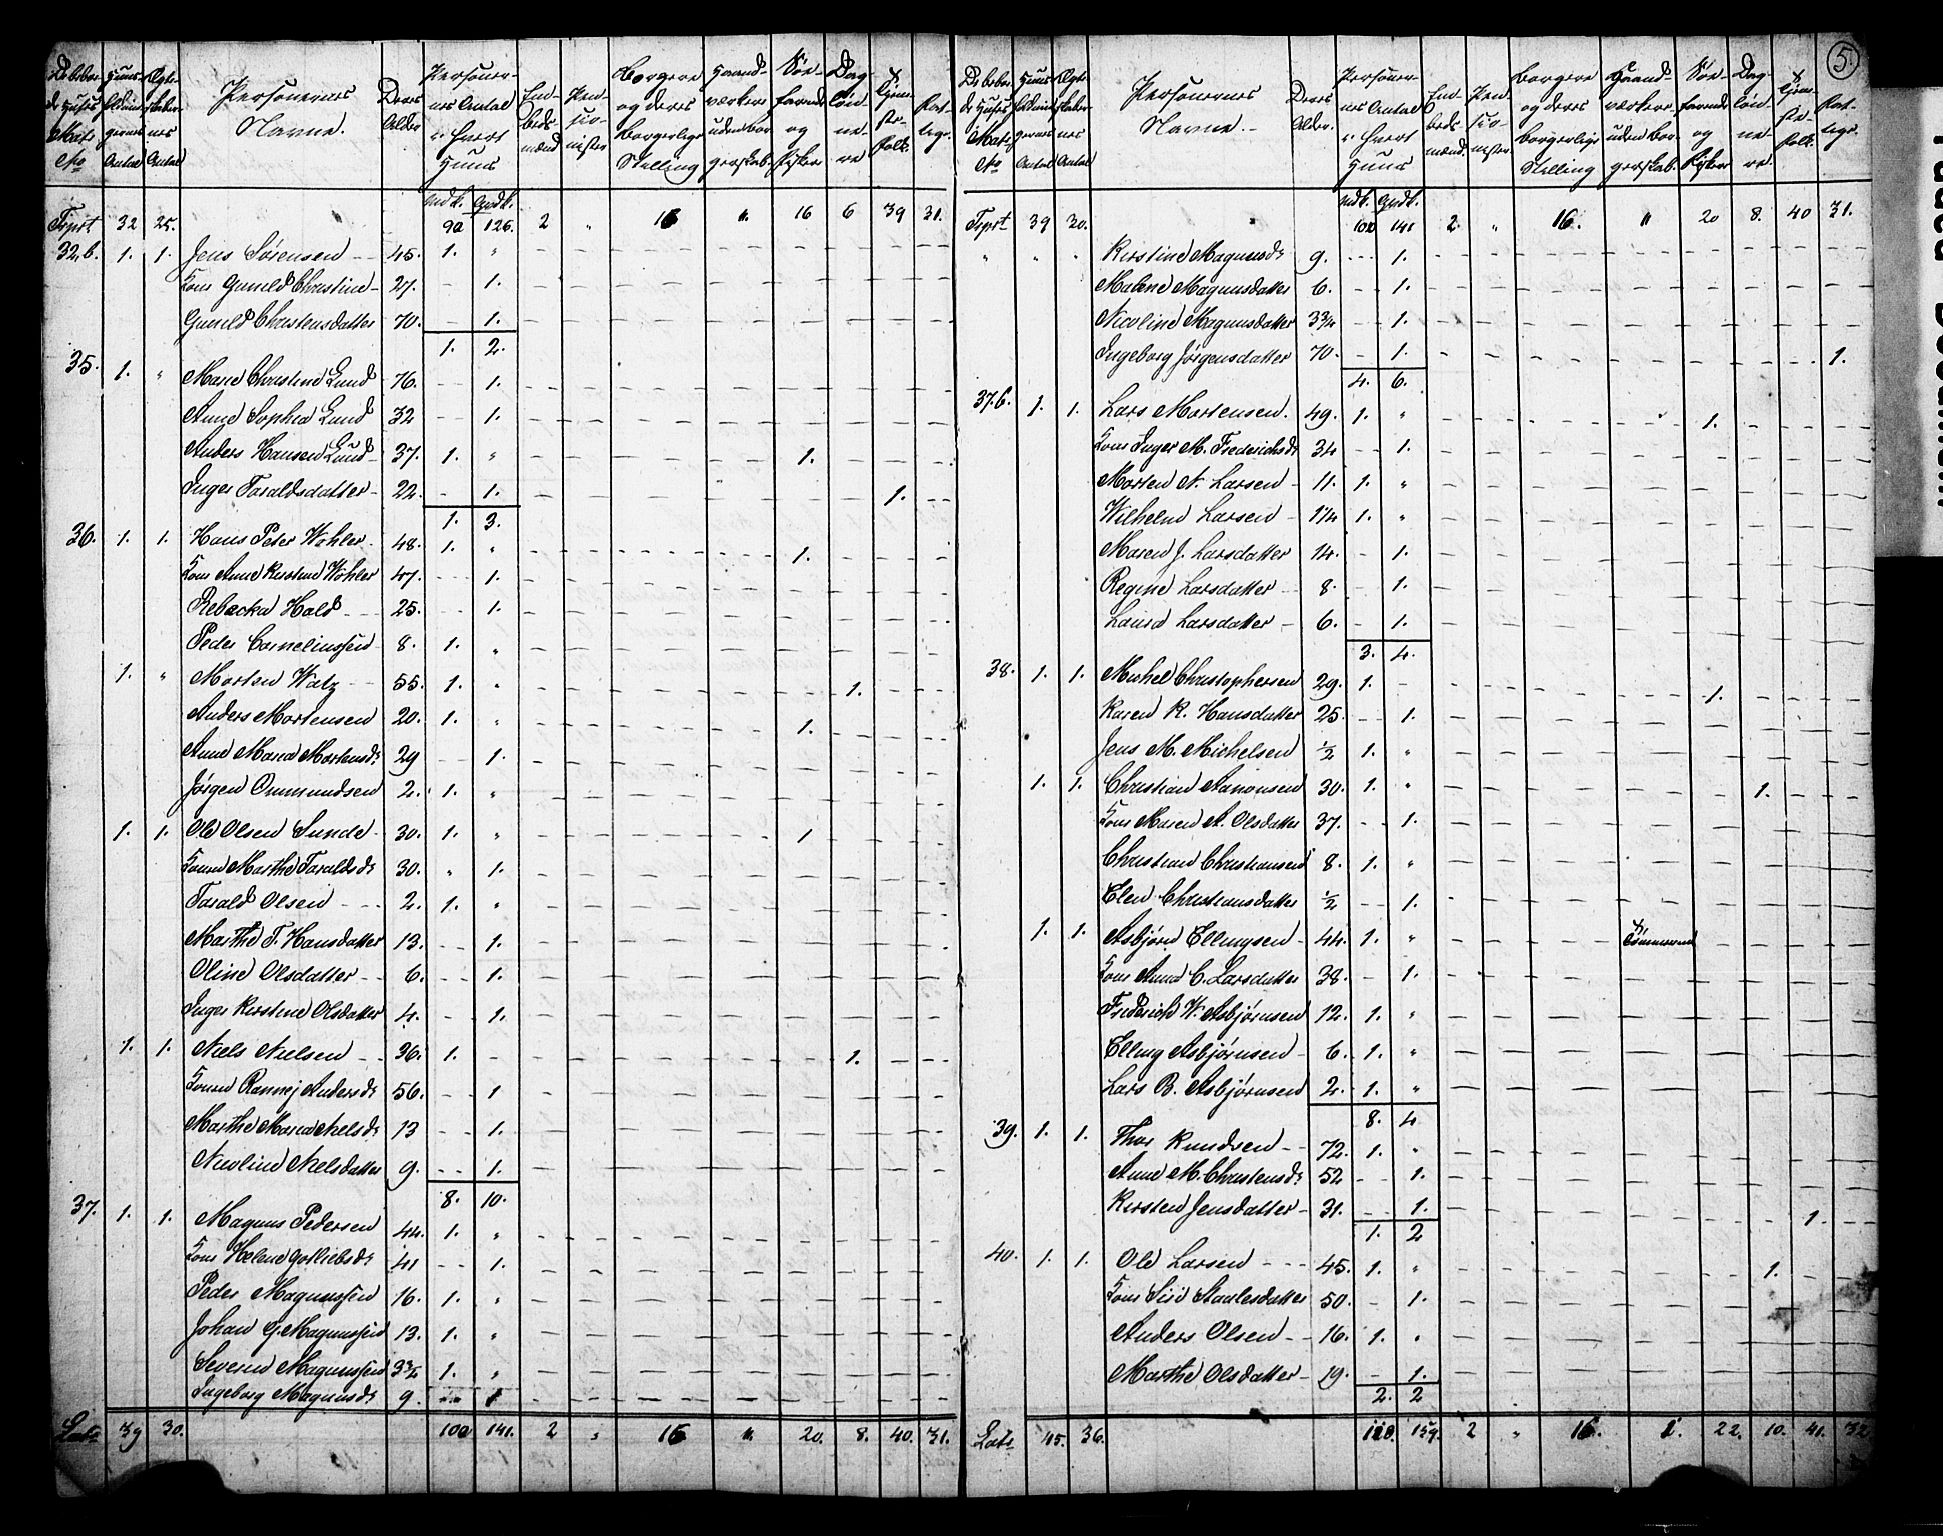 5.
De bebo- de Huses Matr. No | Huus- holdnin- gernes Antal | Ægte- skaber- nes Antal | Personernes Navne. | Deres Alder | Personer- nes Antal i hvert Huus | Em- beds- mænd | Pen- sio- nister | Borgere og deres borgerlige Stilling | Haand- værkere uden bor- gerskab. | Søe- farende og Fiskere | Dag- løn- ne- re | Tjene- ste- folk. | Fat- tige.
Mdk. Qvdk.
Trprt 32 25. 90 126. 2 " 16 " 16 6 39 31.
32.b. 1. 1. Jens Sørensen 45. 1. "
Kone Gunild Christine 27. 1.
Gunild Christensdatter 70. 1.
1. 2.
35. 1. " Maren Christine Lund 76. 1.
Anne Sophia Lund 32 1.
Anders Hansen Lund 37. 1. " 1.
Inger Taraldsdatter 22. 1. 1.
1. 3.
36. 1. 1. Hans Peter Wøhler 48. 1. " 1.
Kone Anne Kirstine Wøhler 47. 1.
Rebecka Hald 25. 1.
Peder Corneliussen 8. 1. "
1. " Morten Watz 55. 1. " 1.
Anders Mortensen 20. 1. " 1.
Anne Maria Mortensd: 29 1.
Jørgen Ommundsen 2. 1. "
1. 1. Ole Olsen Sunde 30. 1. " 1
Konen Marthe Taraldsd: 30. " 1.
Tarald Olsen 2. 1. "
Marthe T. Hansdatter 13. 1.
Oline Olsdatter 6. 1.
Inger Kirstine Olsdatter 4. 1.
1. 1. Niels Nielsen 36. 1. 1.
Konen Rannej Andersd: 56. 1
Marthe Maria Nielsd: 13 1.
Nicoline Nielsdatter 9. 1.
8. 10.
37. 1. 1. Magnus Pedersen 44. 1. "
Kone Helene Gotliebsd: 41 1.
Peder Magnussen 16. 1. "
Johan G. Magnussen 13. 1. "
Severin Magnussen 3¾ 1. "
Ingeborg Magnusd: 9. 1
Lats 39 30. 100 141. 2 " 16 " 20. 8. 40. 31.
De bebo- de Huses Matr. No | Huus- holdnin- gernes Antal | Ægte- skaber- nes Antal | Personernes Navne. | Deres Alder. | Personer- nes Antal i hvert Huus | Em- beds- mænd. | Pen- sio- nister. | Borgere og deres borgerlige Stilling | Haand- værkere uden bor- gerskab. | Søe- farende og Fiskere | Dag- løn- ne- re. | Tjene- ste- folk. | Fat- tige.
Mdk. Qvdk.
Trprt 39 30. 100 141 2. " 16. " 20 8. 40 31.
" " " Kirstine Magnusd: 9. 1.
Malene Magnusdatter 6. 1.
Nicoline Magnusdatter 3¾ 1.
Ingeborg Jørgensdatter 70. 1. 1.
4. 6.
37.b. 1. 1. Lars Mortensen. 49. 1. " 1.
Kone Inger M. Frederichsd: 34 1.
Morten N. Larsen 11. 1. "
Wilhelm Larsen 1¼ 1. "
Maren J. Larsdatter 14. 1.
Regine Larsdatter 8. 1.
Laura Larsdatter 6. 1.
3. 4.
38. 1. 1. Michel Christophersen 29. 1. 1.
Karen K. Hansdatter 25. 1.
Jens M. Michelsen ½ 1. "
1. 1. Christian Aanonsen 30. 1. " 1.
Kone Maren A. Olsdatter 37. 1.
Christian Christiansen 8. 1. "
Elen Christiansdatter ½ 1.
1. 1. Asbjørn Ellingsen 44. 1. " Tømmermd
Kone Anna C. Larsdatter 38. 1.
Frederich W. Asbjørnsen 12. 1. "
Elling Asbjørnsen 6. 1. "
Lars B. Asbjørnsen 2. 1. "
8. 4
39. 1. 1. Thor Knudsen 72. 1. "
Anne M. Christensd: 52 1.
Kirsten Jensdatter 31. 1. 1.
1. 2
40. 1. 1. Ole Larsen 45. 1. " 1.
Kone Siri Staalesdatter 50. 1.
Anders Olsen 16. 1. "
Marthe Olsdatter 19. 1.
2. 2
Lats 45. 36. 118. 159. 2 " 16. 1. 22. 10. 41. 32